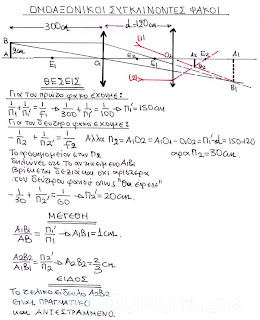 ΟΜΟΑΞΟΝΙΚΟΙ ΣΥΓΚΛΙΝΟΝΤΕΣ ΦΑΚΟΙ
300cm d=120cm
B (1) A2 E2 A1
2cm
A E1 O1 E2 E1 O2
(2) B2 B1
ΘΕΣΕΙΣ
Για τον πρώτο φακό έχουμε:
1/Π1 + 1/Π1' = 1/f1 → 1/300 + 1/Π1' = 1/100 → Π1' = 150cm
Για τον δεύτερο φακό έχουμε:
-1/Π2 + 1/Π2' = 1/f2 Αλλά Π2 = A1O2 = A1O1 - O1O2 = Π1' - d = 150-120
Το πρόσημο - στην Π2 άρα Π2 = 30cm.
δηλώνει ότι το αντικείμενο A1B1
βρίσκεται δεξιά και όχι αριστερά
του δεύτερου φακού όπως "θα έπρεπε"
-1/30 + 1/Π2' = 1/60 → Π2' = 20cm.
ΜΕΓΕΘΗ
A1B1/AB = Π1'/Π1 → A1B1 = 1cm.
A2B2/A1B1 = Π2'/Π2 → A2B2 = 2/3 cm
ΕΙΔΟΣ
Το τελικό είδωλο A2B2
είναι ΠΡΑΓΜΑΤΙΚΟ
και ΑΝΤΕΣΤΡΑΜΜΕΝΟ.